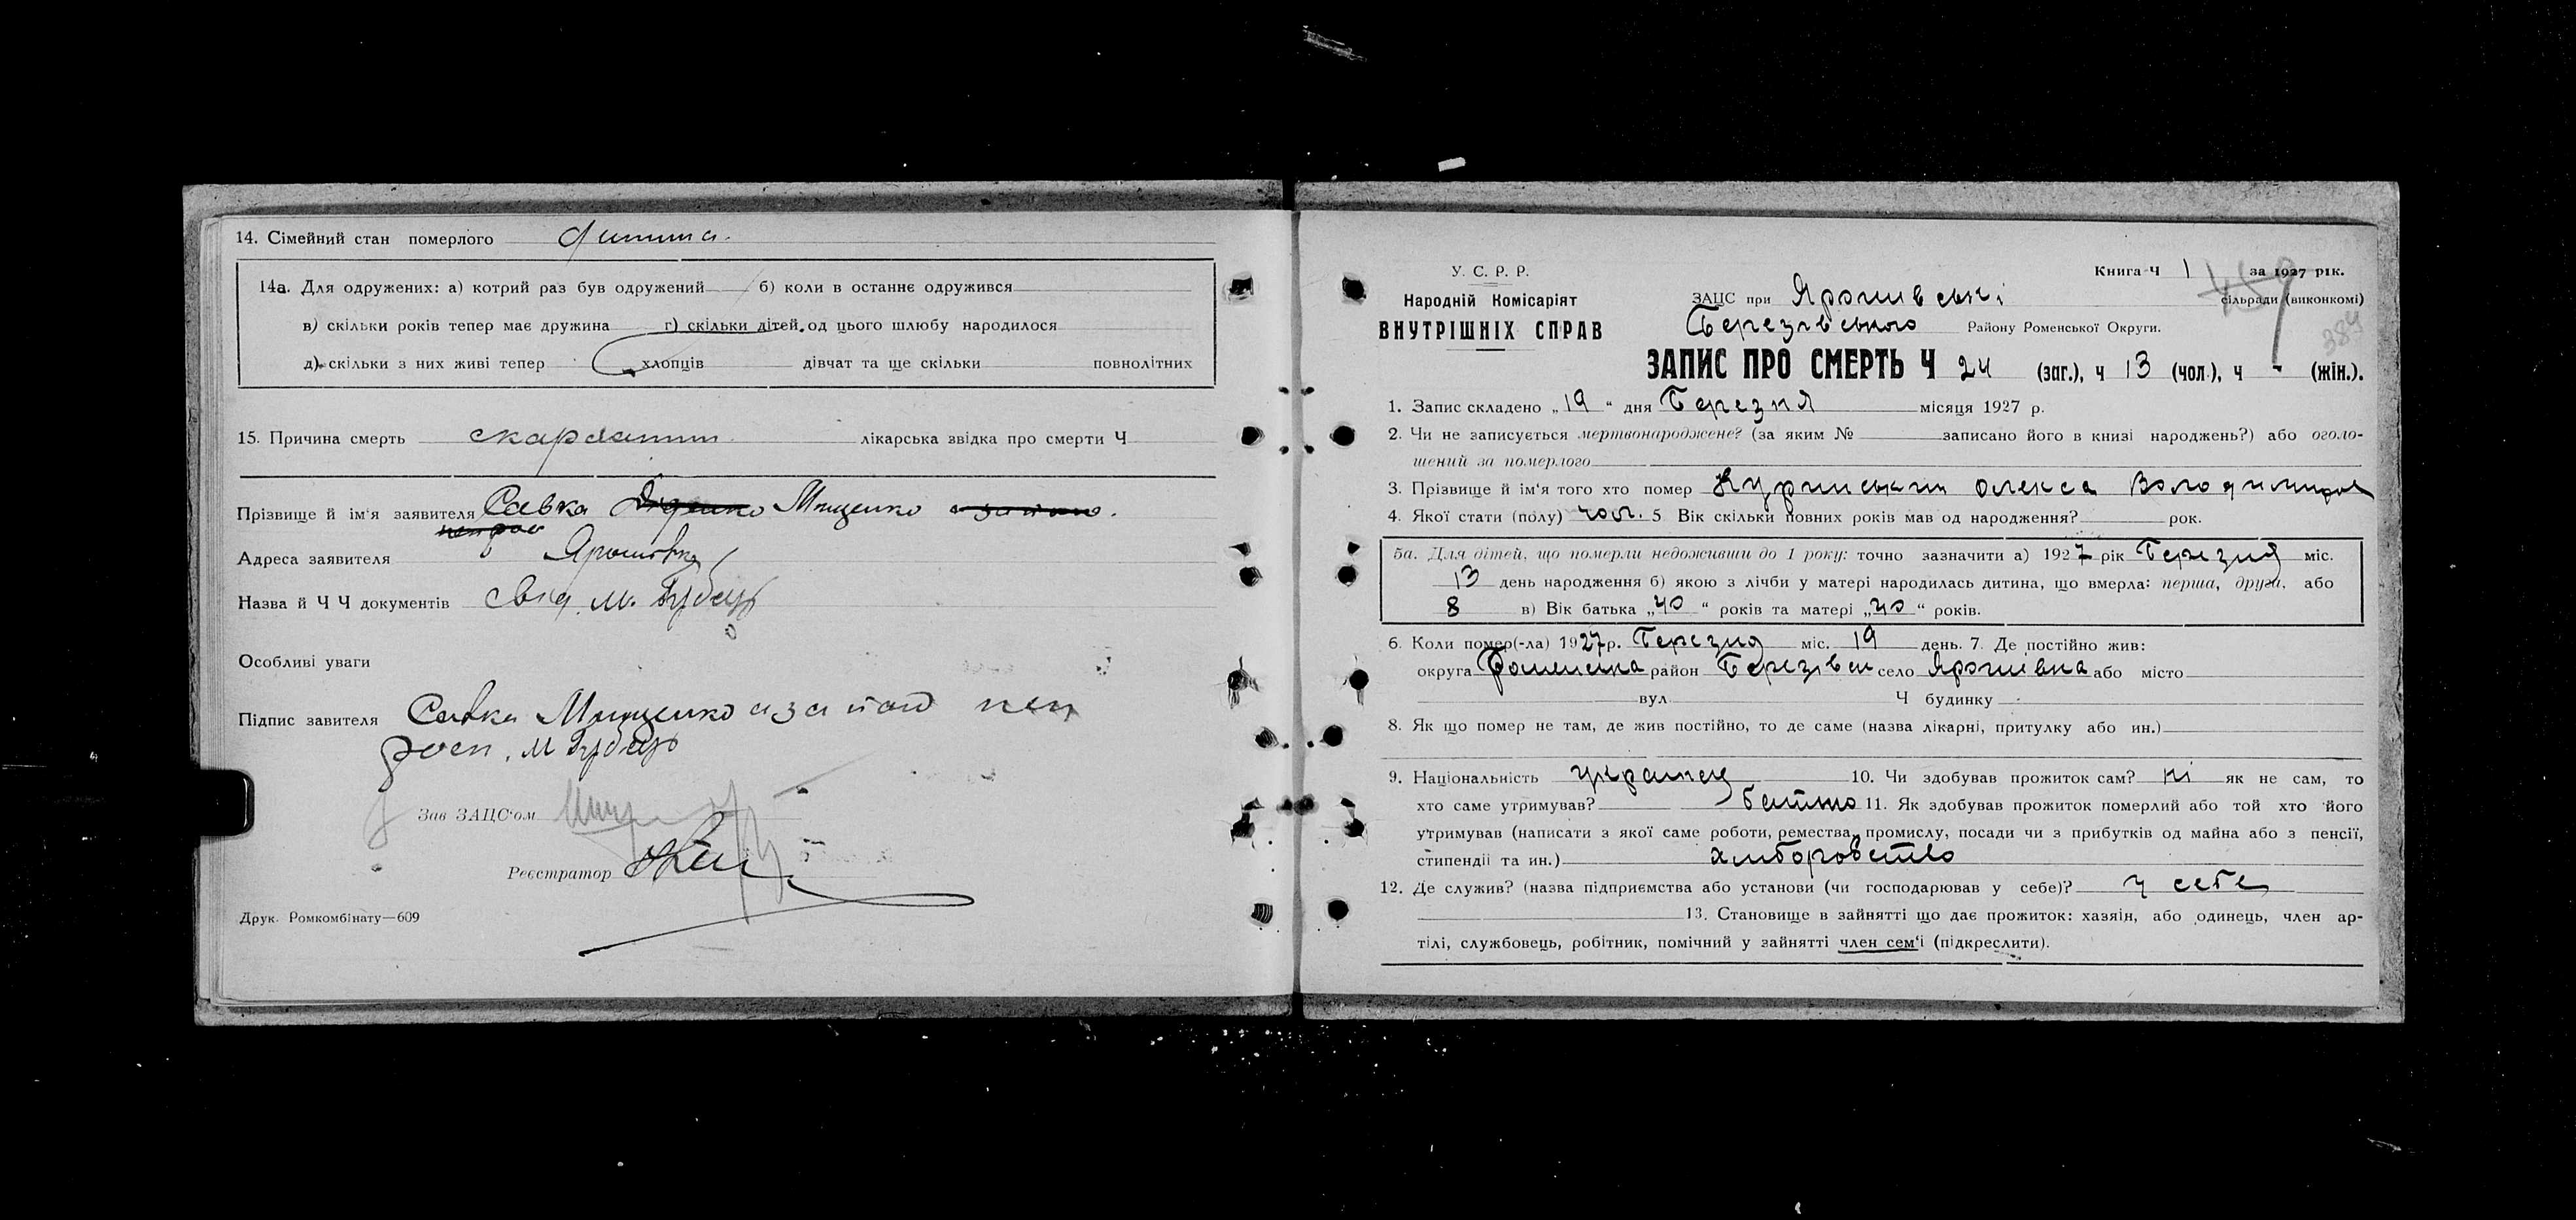 14. Сімейний стан померлого дитина.
14а. Для одружених: а) котрий раз був одружений б) коли в останнє одружився
в) скільки років тепер має дружина г) скільки дітей од цього шлюбу народилося
д) скільки з них живі тепер хлопців дівчат та ще скільки повнолітних
15. Причина смерть скарлатин лікарська звідка про смерти Ч
Прізвище й ім'я заявителя Савка Мищенко
Адреса заявителя Ярошівка
Назва й Ч Ч документів
Особливі уваги
Підпис завителя Савка Мищенко а за його неп
росп. м
Зав ЗАЦС'ом
Реєстратор
Друк. Ромкомбінату—609
У. С. Р. Р.
Народній Комісаріят
ВНУТРІШНІХ СПРАВ
Книга Ч 1 за 1927 рік.
ЗАЦС при Ярошивські сільради (виконкомі)
384
Березівського Району Роменської Округи.
ЗАПИС ПРО СМЕРТЬ Ч 24 (заг.), ч 13 (чол.), ч - (жін.).
1. Запис складено „19“ дня Березня місяця 1927 р.
2. Чи не записується мертвонароджене? (за яким № записано його в книзі народжень?) або оголо-
шений за померлого
3. Прізвище й ім'я того хто помер Олекса
4. Якої стати (полу) чол. 5 Вік скільки повних років мав од народження? рок.
5а. Для дітей, що померли недоживши до 1 року: точно зазначити а) 1927 рік Березня міс.
13 день народження б) якою з лічби у матері народилась дитина, що вмерла: перша, друга, або
8 в) Вік батька „40“ років та матері „40“ років.
6. Коли помер(-ла) 1927р. Березня міс. 19 день. 7. Де постійно жив:
округа Роменська район Березівськ село Ярошівка або місто
вул. Ч будинку
8. Як що помер не там, де жив постійно, то де саме (назва лікарні, притулку або ин.)
9. Національність українец 10. Чи здобував прожиток сам? ні як не сам, то
хто саме утримував? батько 11. Як здобував прожиток померлий або той хто його
утримував (написати з якої саме роботи, ремества, промислу, посади чи з прибутків од майна або з пенсії,
стипендії та ин.) хліборобство
12. Де служив? (назва підприємства або установи (чи господарював у себе)? у себе
13. Становище в зайнятті що дає прожиток: хазяін, або одинець, член ар-
тілі, службовець, робітник, помічний у зайнятті член сем'ї (підкреслити).